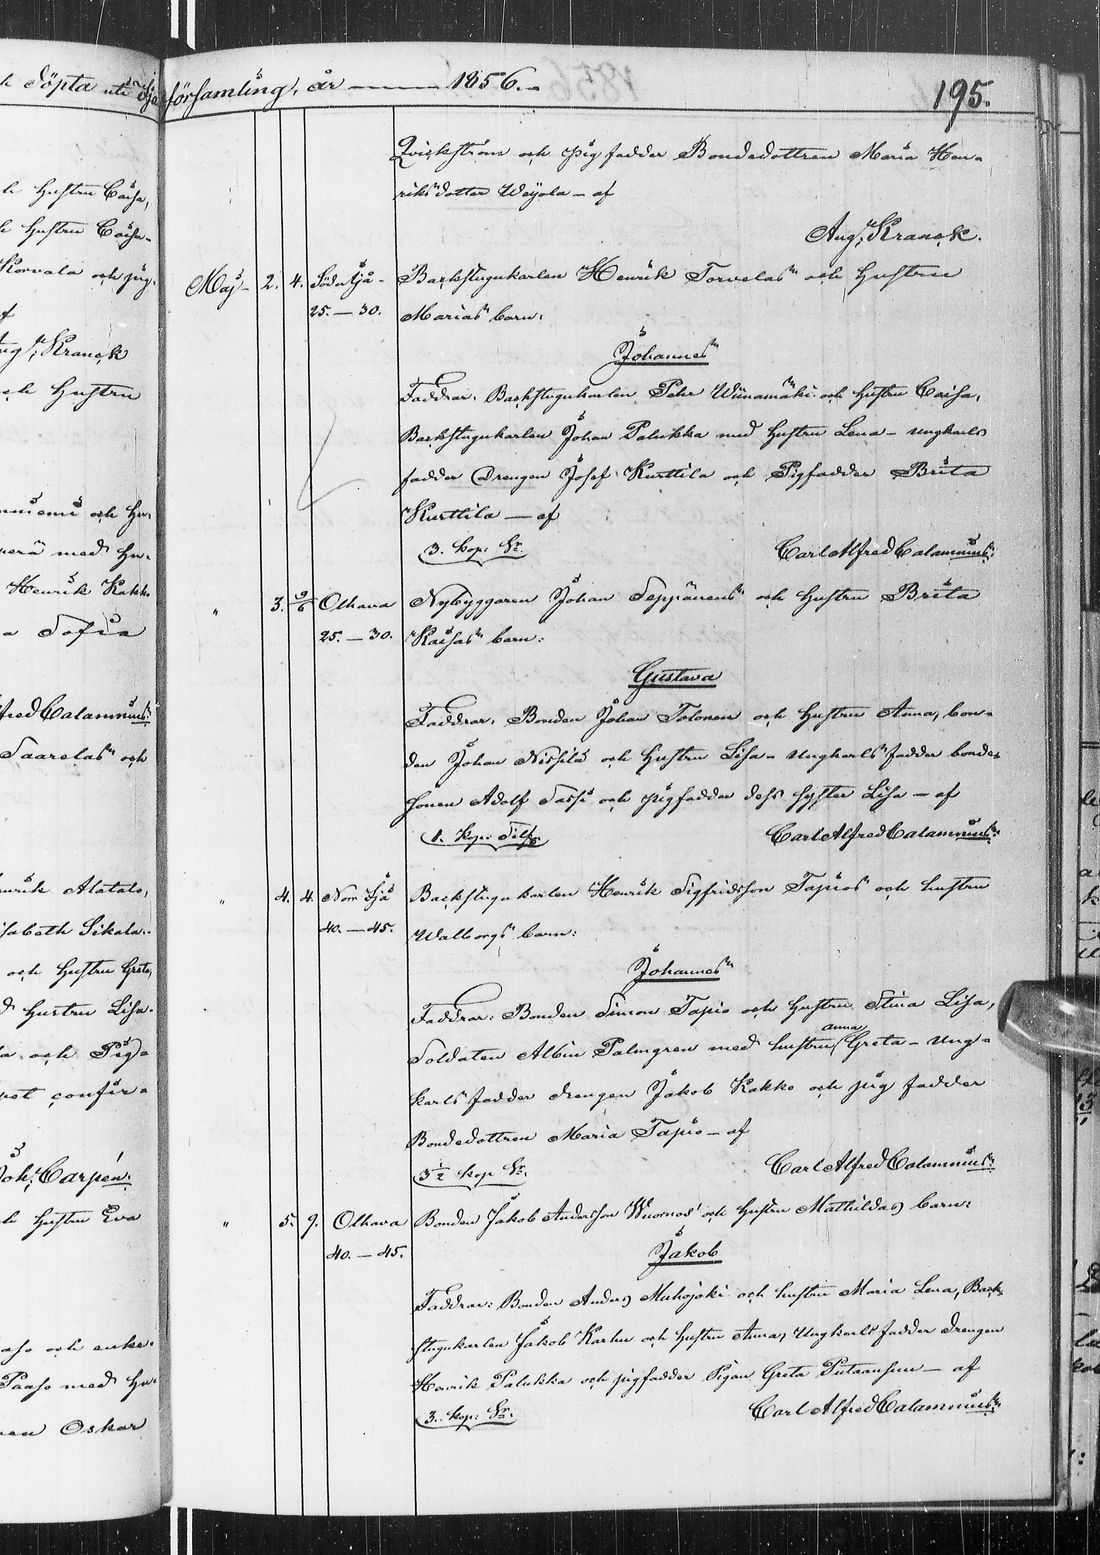 församling, år — 1856.
195.
Qvickström och pigfadder Bondedottren Maria Hen-
riksdotter Weijola — af
Aug. Kranck.
Maj — 2. 4. Söderijå — Backstugukarlen Henrik Torvelas och hustru
25. — 30. Marias barn:
Johannes
Faddrar: Backstugukarlen Petter Wiinamäki och hustru Caisa,
Backstugukarlen Johan Palukka med hustru Lena — ungkarls
fadder Drengen Josef Kurttila och Pigfadder Brita
Kurttila — af
3. kop: Sr. Carl Alfred Calamnius.
" 3. 5/6 Olhava Nybyggaren Johan Seppänens och hustru Brita
25. — 30. Kaisas barn:
Gustava
Faddrar: Bonden Johan Tolonen och hustru Anna, bon-
den Johan Nissilä och hustru Lisa — Ungkarlsfadder bonde-
sonen Adolf Sassi och pigfadder dess syster Lisa — af
1. kop: Silf. Carl Alfred Calamnius.
" 4. 4. Norr Ijå Backstugukarlen Henrik Sigfridsson Tapios och hustru
40. — 45. Walborgs barn:
Johannes
Faddrar: Bonden Simon Tapio och hustru Stina Lisa,
Soldaten Albin Palmgren med hustru Anna Greta — Ung-
karlsfadder drengen Jakob Kakko och pigfadder
Bondedottren Maria Tapio — af
3 1/2 kop Sr. Carl Alfred Calamnius.
" 5. 9. Olhava Bonden Jakob Andersson Wuornos och hustru Mathildas barn:
40. — 45. Jakob
Faddrar: Bonden Anders Muhojoki och hustru Maria Lena, Back-
stugukarlen Jakob Karhu och hustru Anna, Ungkarlsfadder drengen
Henrik Palukka och pigfadder Pigan Greta Putaansuu — af
3. kop: Sr. Carl Alfred Calamnius.